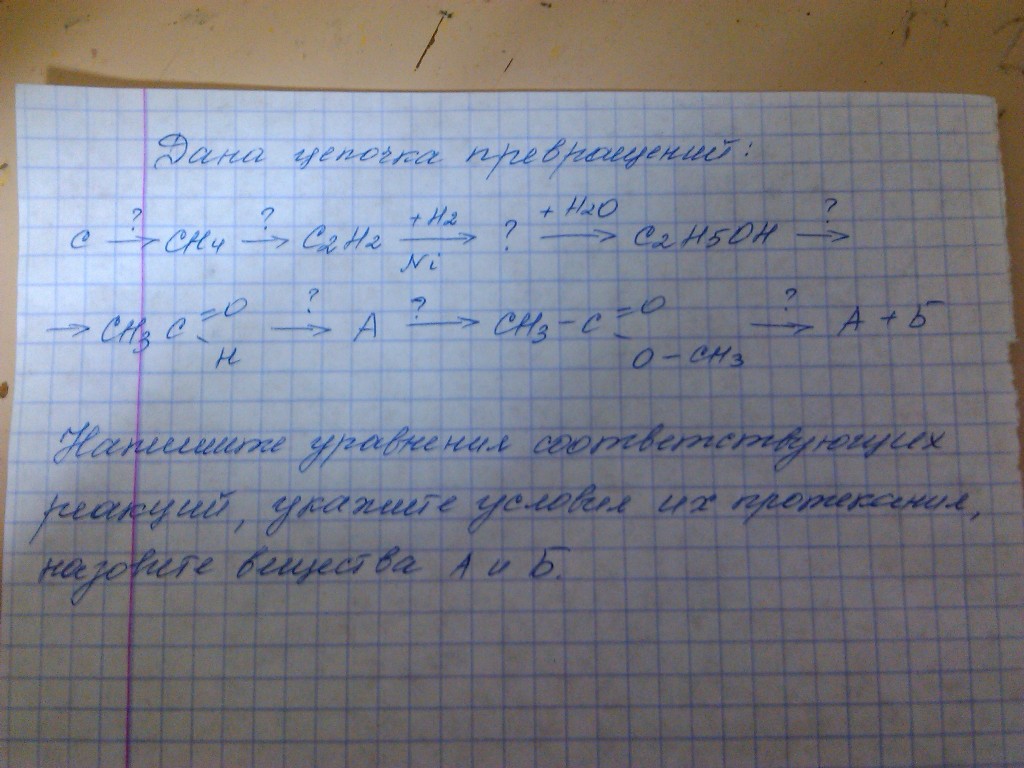 Дана цепочка превращений:
C →? CH4 →? C2H2 →+H2 Ni ? →+H2O C2H5OH →?
→ CH3 C =O -H →? A →? CH3-C =O -O-CH3 →? A + Б
Напишите уравнения соответствующих
реакций, укажите условия их протекания,
назовите вещества А и Б.